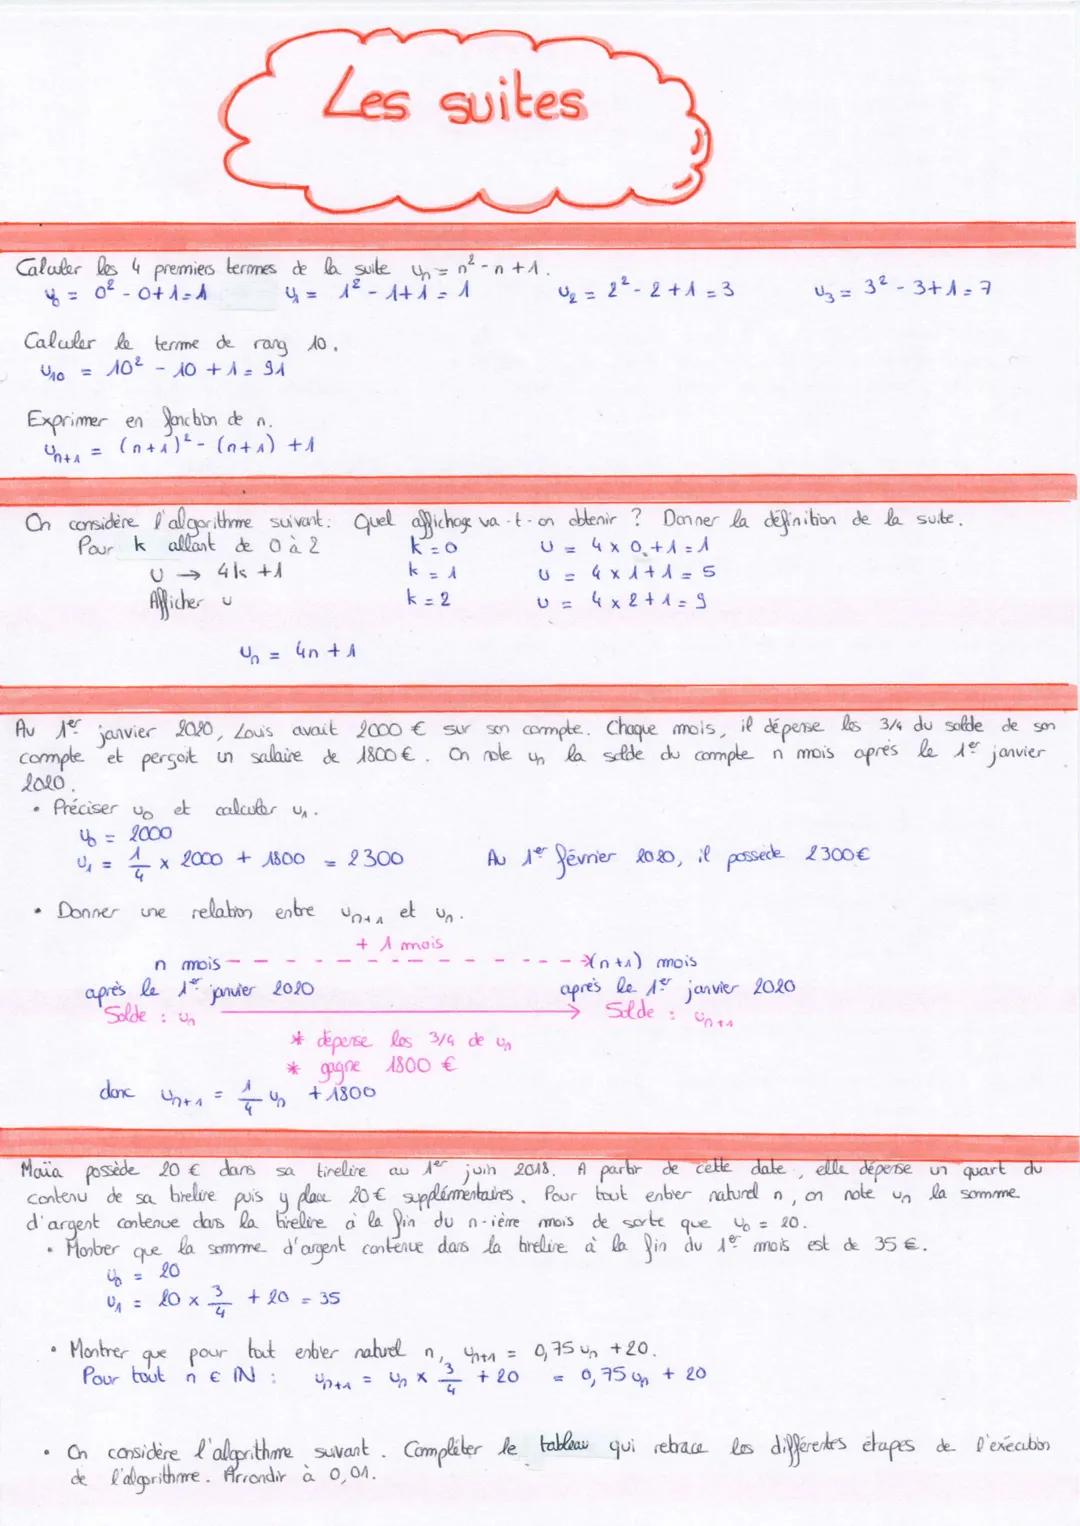 Les suites
Calculer les 4 premiers termes de la suite uₙ = n² - n + 1.
u₀ = 0² - 0 + 1 = 1 u₁ = 1² - 1 + 1 = 1 u₂ = 2² - 2 + 1 = 3 u₃ = 3² - 3 + 1 = 7
Calculer le terme de rang 10.
u₁₀ = 10² - 10 + 1 = 91
Exprimer en fonction de n.
uₙ₊₁ = (n+1)² - (n+1) + 1
On considère l'algorithme suivant. Quel affichage va-t-on obtenir ? Donner la définition de la suite.
Pour k allant de 0 à 2 k = 0 U = 4 x 0 + 1 = 1
U → 4k + 1 k = 1 U = 4 x 1 + 1 = 5
Afficher U k = 2 U = 4 x 2 + 1 = 9
Uₙ = 4n + 1
Au 1er janvier 2020, Louis avait 2000 € sur son compte. Chaque mois, il dépense les 3/4 du solde de son
compte et perçoit un salaire de 1800 €. On note uₙ la solde du compte n mois après le 1er janvier
2020.
• Préciser u₀ et calculer u₁.
u₀ = 2000
u₁ = 1/4 x 2000 + 1800 = 2300 Au 1er février 2020, il possède 2300€
• Donner une relation entre uₙ₊₁ et uₙ.
+ 1 mois
n mois - - - - - - - - - - - → (n+1) mois
après le 1er janvier 2020 après le 1er janvier 2020
Solde : uₙ → Solde : uₙ₊₁
* dépense les 3/4 de uₙ
* gagne 1800 €
donc uₙ₊₁ = 1/4 uₙ + 1800
Maïa possède 20 € dans sa tirelire au 1er juin 2018. A partir de cette date, elle dépense un quart du
contenu de sa tirelire puis y place 20 € supplémentaires. Pour tout entier naturel n, on note uₙ la somme
d'argent contenue dans la tirelire à la fin du n-ième mois de sorte que u₀ = 20.
• Montrer que la somme d'argent contenue dans la tirelire à la fin du 1er mois est de 35 €.
u₀ = 20
u₁ = 20 x 3/4 + 20 = 35
• Montrer que pour tout entier naturel n, uₙ₊₁ = 0,75 uₙ + 20.
Pour tout n ∈ ℕ : uₙ₊₁ = uₙ x 3/4 + 20 = 0,75 uₙ + 20
• On considère l'algorithme suivant. Compléter le tableau qui retrace les différentes étapes de l'exécution
de l'algorithme. Arrondir à 0,01.